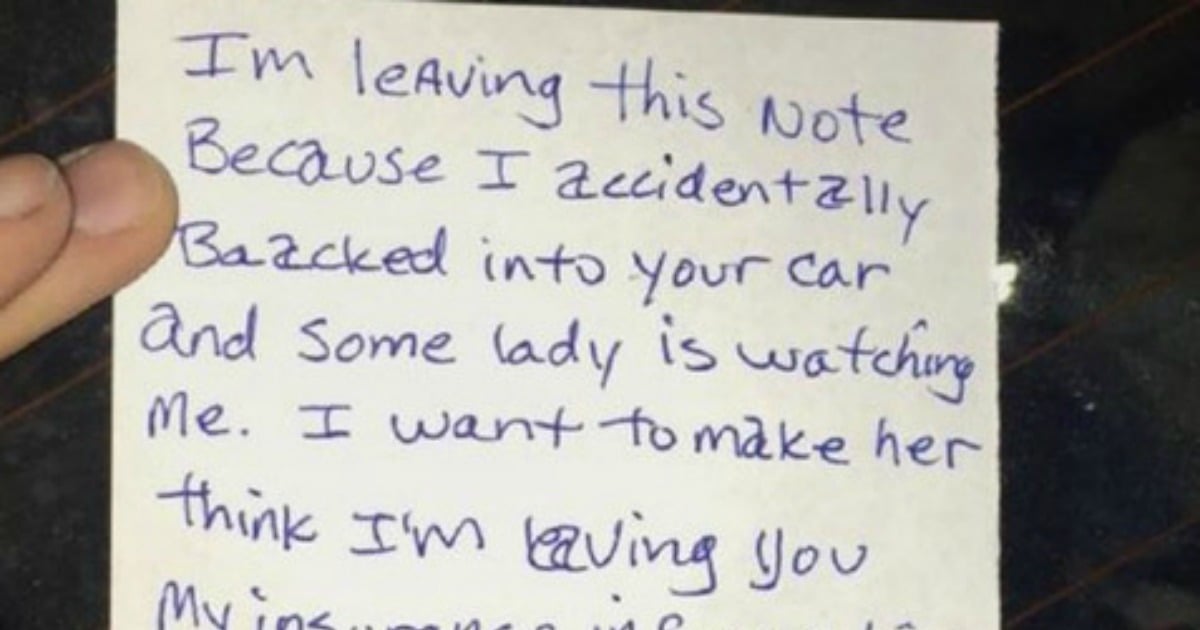 Im leaving this Note
Because I accidentally
Baacked into your car
and some lady is watching
Me. I want to make her
think I'm leaving you
My insurance